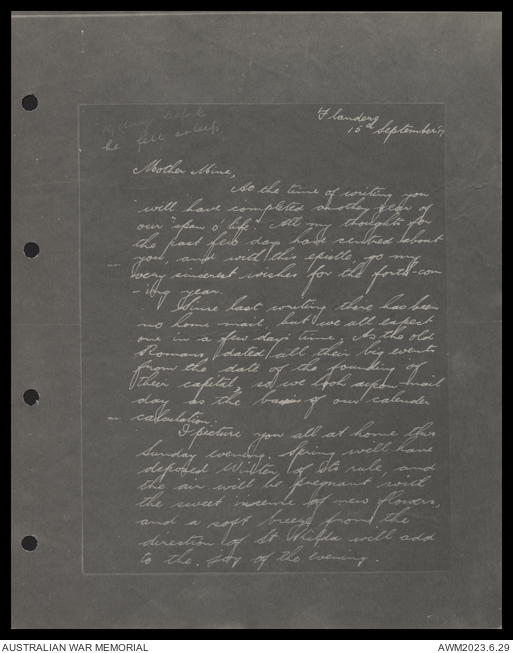 day before
he fell asleep
Flanders
15th September 17
Mother Mine,
As the time of writing you
will have completed another year of
our "span o' life". All my thoughts for
the past few day have centred about
you, and with this epistle, go my
very sincerest wishes for the forth-com
-ing year.
Since last writing there has been
no home mail, but we all expect
one in a few days time. As the old
Romans, dated all their big events
from the date of the founding of
their capital, so we look upon mail
day as the basis of our calender
calculation.
I picture you all at home this
Sunday evening. Spring will have
deposed Winter of its rule, and
the air will be pregnant with
the sweet incense of new flowers,
and a soft breeze from the
direction of St Kilda will add
to the joy of the evening.
AUSTRALIAN WAR MEMORIAL
AWM2023.6.29